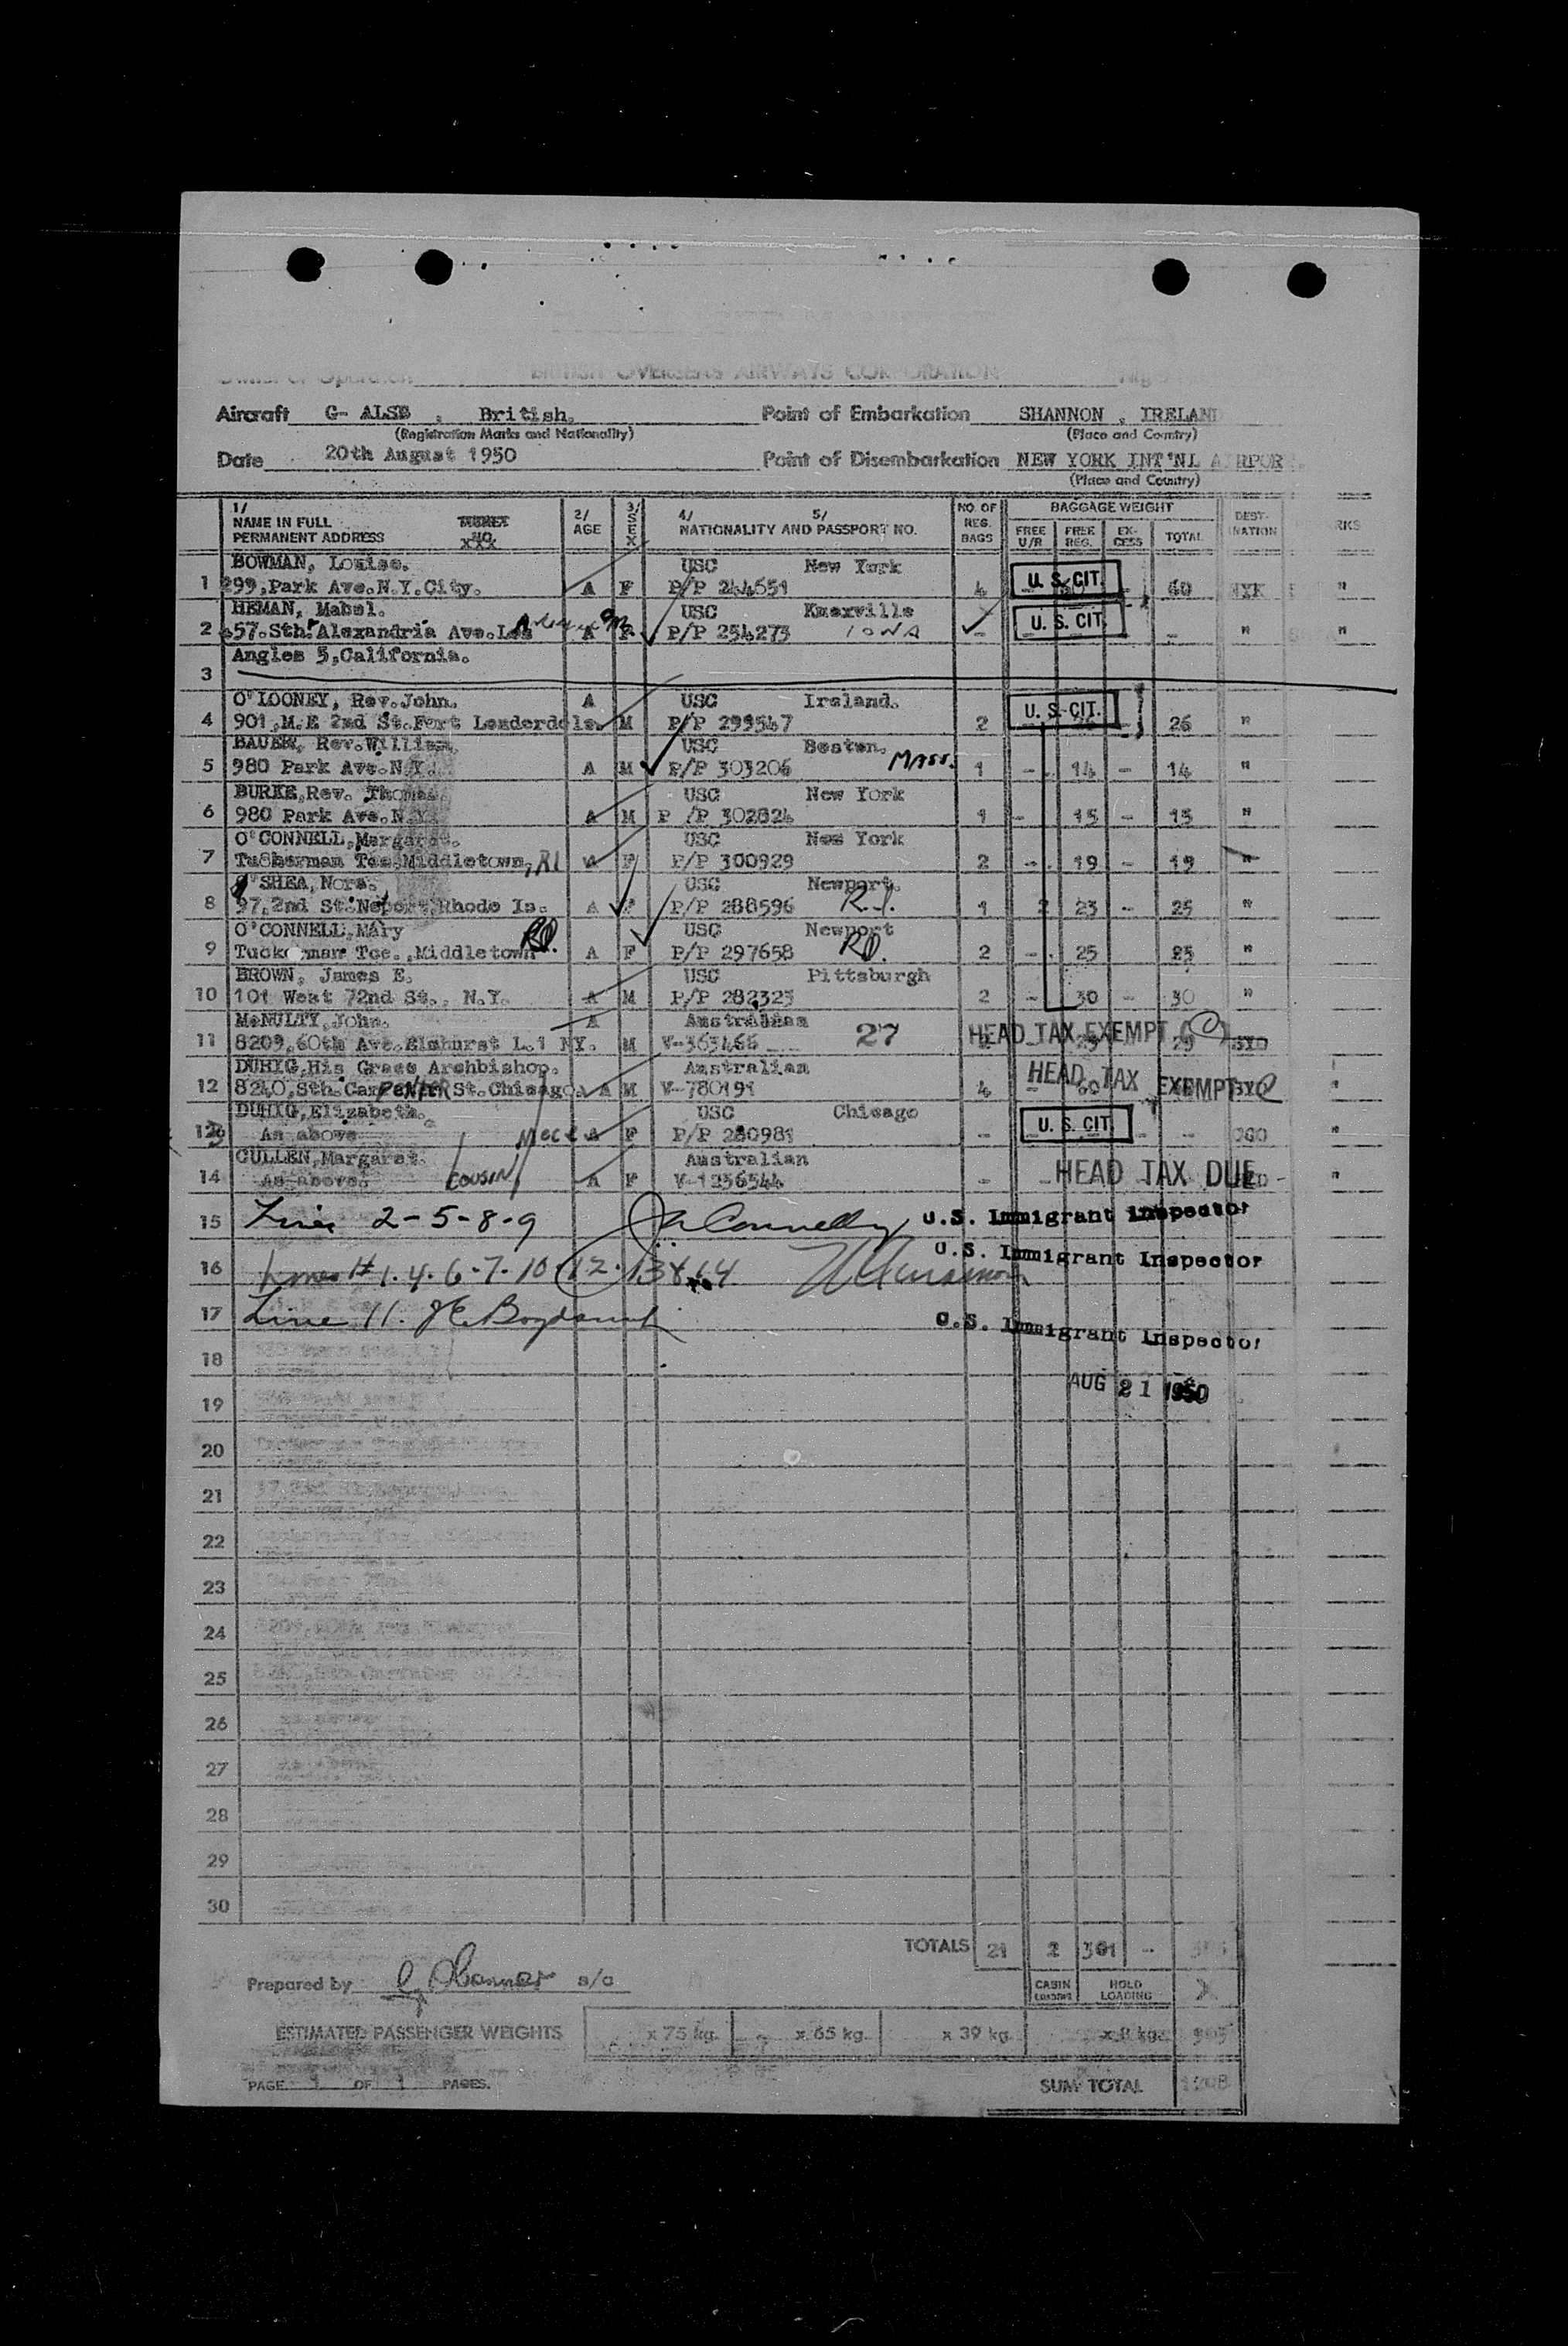 BRITISH OVERSEAS AIRWAYS CORPORATION
Aircraft G- ALSB , British. Point of Embarkation SHANNON , IRELAND
(Registration Marks and Nationality) (Place and Country)
Date 20th August 1950 Point of Disembarkation NEW YORK INT'NL AIRPORT.
(Place and Country)
1/ 2/ 3/ 4/ 5/ NO. OF BAGGAGE WEIGHT DEST-
NAME IN FULL AGE SEX NATIONALITY AND PASSPORT NO. REG. FREE FREE EX- TOTAL INATION RKS
PERMANENT ADDRESS XXX BAGS U/R REG. CESS
BOWMAN, Louise. USC New York
1 299,Park Ave.N.Y.City. A F P/P 244651 4 U. S. CIT. 60 NYK "
HEMAN, Mabel. USC Knoxville
2 457.Sth.Alexandria Ave.Los A F P/P 254273 IOWA - U. S. CIT. - " "
Angles 5,California.
3
O'LOONEY, Rev.John. A USC Ireland.
4 901,M.E 2nd St.Fort Lenderdele. M P/P 299547 2 U. S. CIT. 26 "
BAUER, Rev.William. USC Boston. MASS.
5 980 Park Ave.N.Y. A M P/P 303206 1 - 14 - 14 "
BURKE,Rev. Thomas. USC New York
6 980 Park Ave.N.Y. A M P /P 302824 1 - 15 - 15 "
O'CONNELL,Margaret. USC New York
7 Tuckerman Tce.Middletown, RI A F P/P 300929 2 - 19 - 19 "
O'SHEA,Nora. USC Newport. R.I.
8 97,2nd St.Neport,Rhode Is. A F P/P 288596 1 2 23 - 25 "
O'CONNELL,Mary USC Newport
9 Tuckerman Tce.,Middletown RI. A F P/P 297658 RI. 2 - 25 25 "
BROWN, James E. USC Pittsburgh
10 101 West 72nd St., N.Y. A M P/P 282323 2 - 30 - 30 "
McNULTY,John. A Australian
11 8209,60th Ave.Elmhurst L.1 NY. M V-363466 27 HEAD TAX EXEMPT (C) 29 SYD
DUHIG,His Grace Archbishop. Australian
12 8240,Sth.CarPENTER St.Chicago. A M V-780191 4 HEAD TAX EXEMPT "
DUHIG,Elizabeth. USC Chicago
13 As above Niece A F P/P 280981 - U. S. CIT. - - CGO "
CULLEN,Margaret. Australian
14 As above. COUSIN A F V-1256544 - HEAD TAX DUE "
15 Lines 2-5-8-9 J A Connelly U.S. Immigrant Inspector
16 Lines # 1.4.6.7.10.12.13&14 U.S. Immigrant Inspector
17 Line 11. U.S. Immigrant Inspector
18
AUG 21 1950
19
20
21
22
23
24
25
26
27
28
29
30
TOTALS 21 2 301 -
Prepared by s/o CABIN LOADING HOLD LOADING
ESTIMATED PASSENGER WEIGHTS x 75 kg. x 65 kg. x 39 kg. x 8 kg.
PAGE 1 OF 1 PAGES. SUM TOTAL